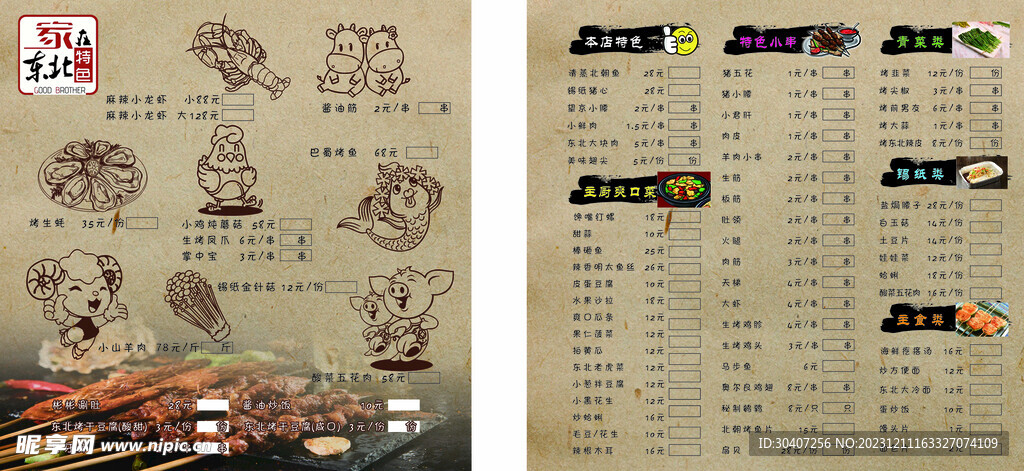 家在
东北
特色
GOOD BROTHER
麻辣小龙虾 小88元
麻辣小龙虾 大128元
酱油筋 2元/串 串
巴蜀烤鱼 68元
烤生蚝 35元/份
小鸡炖蘑菇 58元
生烤凤爪 6元/串 串
掌中宝 3元/串 串
锡纸金针菇 12元/份
小山羊肉 78元/斤 斤
酸菜五花肉 58元
彬彬涮肚 28元
酱油炒饭 10元
东北烤干豆腐(酸甜) 3元/份 份
东北烤干豆腐(咸口) 3元/份 份
串
昵享网 www.nipic.cn
本店特色
清蒸北朝鱼 28元
锡纸猪心 28元
望京小腰 2元/串 串
小鲜肉 1.5元/串 串
东北大块肉 5元/串 串
美味翅尖 5元/份 份
主厨爽口菜
馋嘴钉螺 18元
甜蒜 10元
棒唿鱼 25元
辣香明太鱼丝 26元
皮蛋豆腐 10元
水果沙拉 18元
爽口瓜条 12元
果仁菠菜 12元
拍黄瓜 12元
东北老虎菜 12元
小葱拌豆腐 12元
小黑花生 12元
炒蛤蜊 16元
毛豆/花生 10元
辣根木耳 16元
特色小串
猪五花 1元/串 串
猪小腰 1元/串 串
小君肝 1元/串 串
肉皮 1元/串 串
羊肉小串 2元/串 串
生筋 2元/串 串
板筋 2元/串 串
肚领 2元/串 串
火腿 2元/串 串
肉筋 3元/串 串
天梯 4元/串 串
大虾 4元/串 串
生烤鸡胗 4元/串 串
生烤鸡头 3元/串 串
马步鱼 6元
奥尔良鸡翅 8元/串 串
秘制鹌鹑 8元/只 只
北朝烤鱼片 15元
扇贝 28元/份 份
青菜类
烤韭菜 12元/份 份
烤尖椒 3元/串 串
烤前男友 6元/串 串
烤大蒜 1元/串 串
烤东北辣皮 8元/份 份
锡纸类
盐焗嗓子 28元/份
白玉菇 14元/份
土豆片 14元/份
娃娃菜 12元/份
蛤蜊 18元/份
酸菜五花肉 16元/份
主食类
海鲜疙瘩汤 16元
炒方便面 12元
东北大冷面 12元
蛋炒饭 10元
馒头片 1元
ID:30407256 NO:20231211163327074109